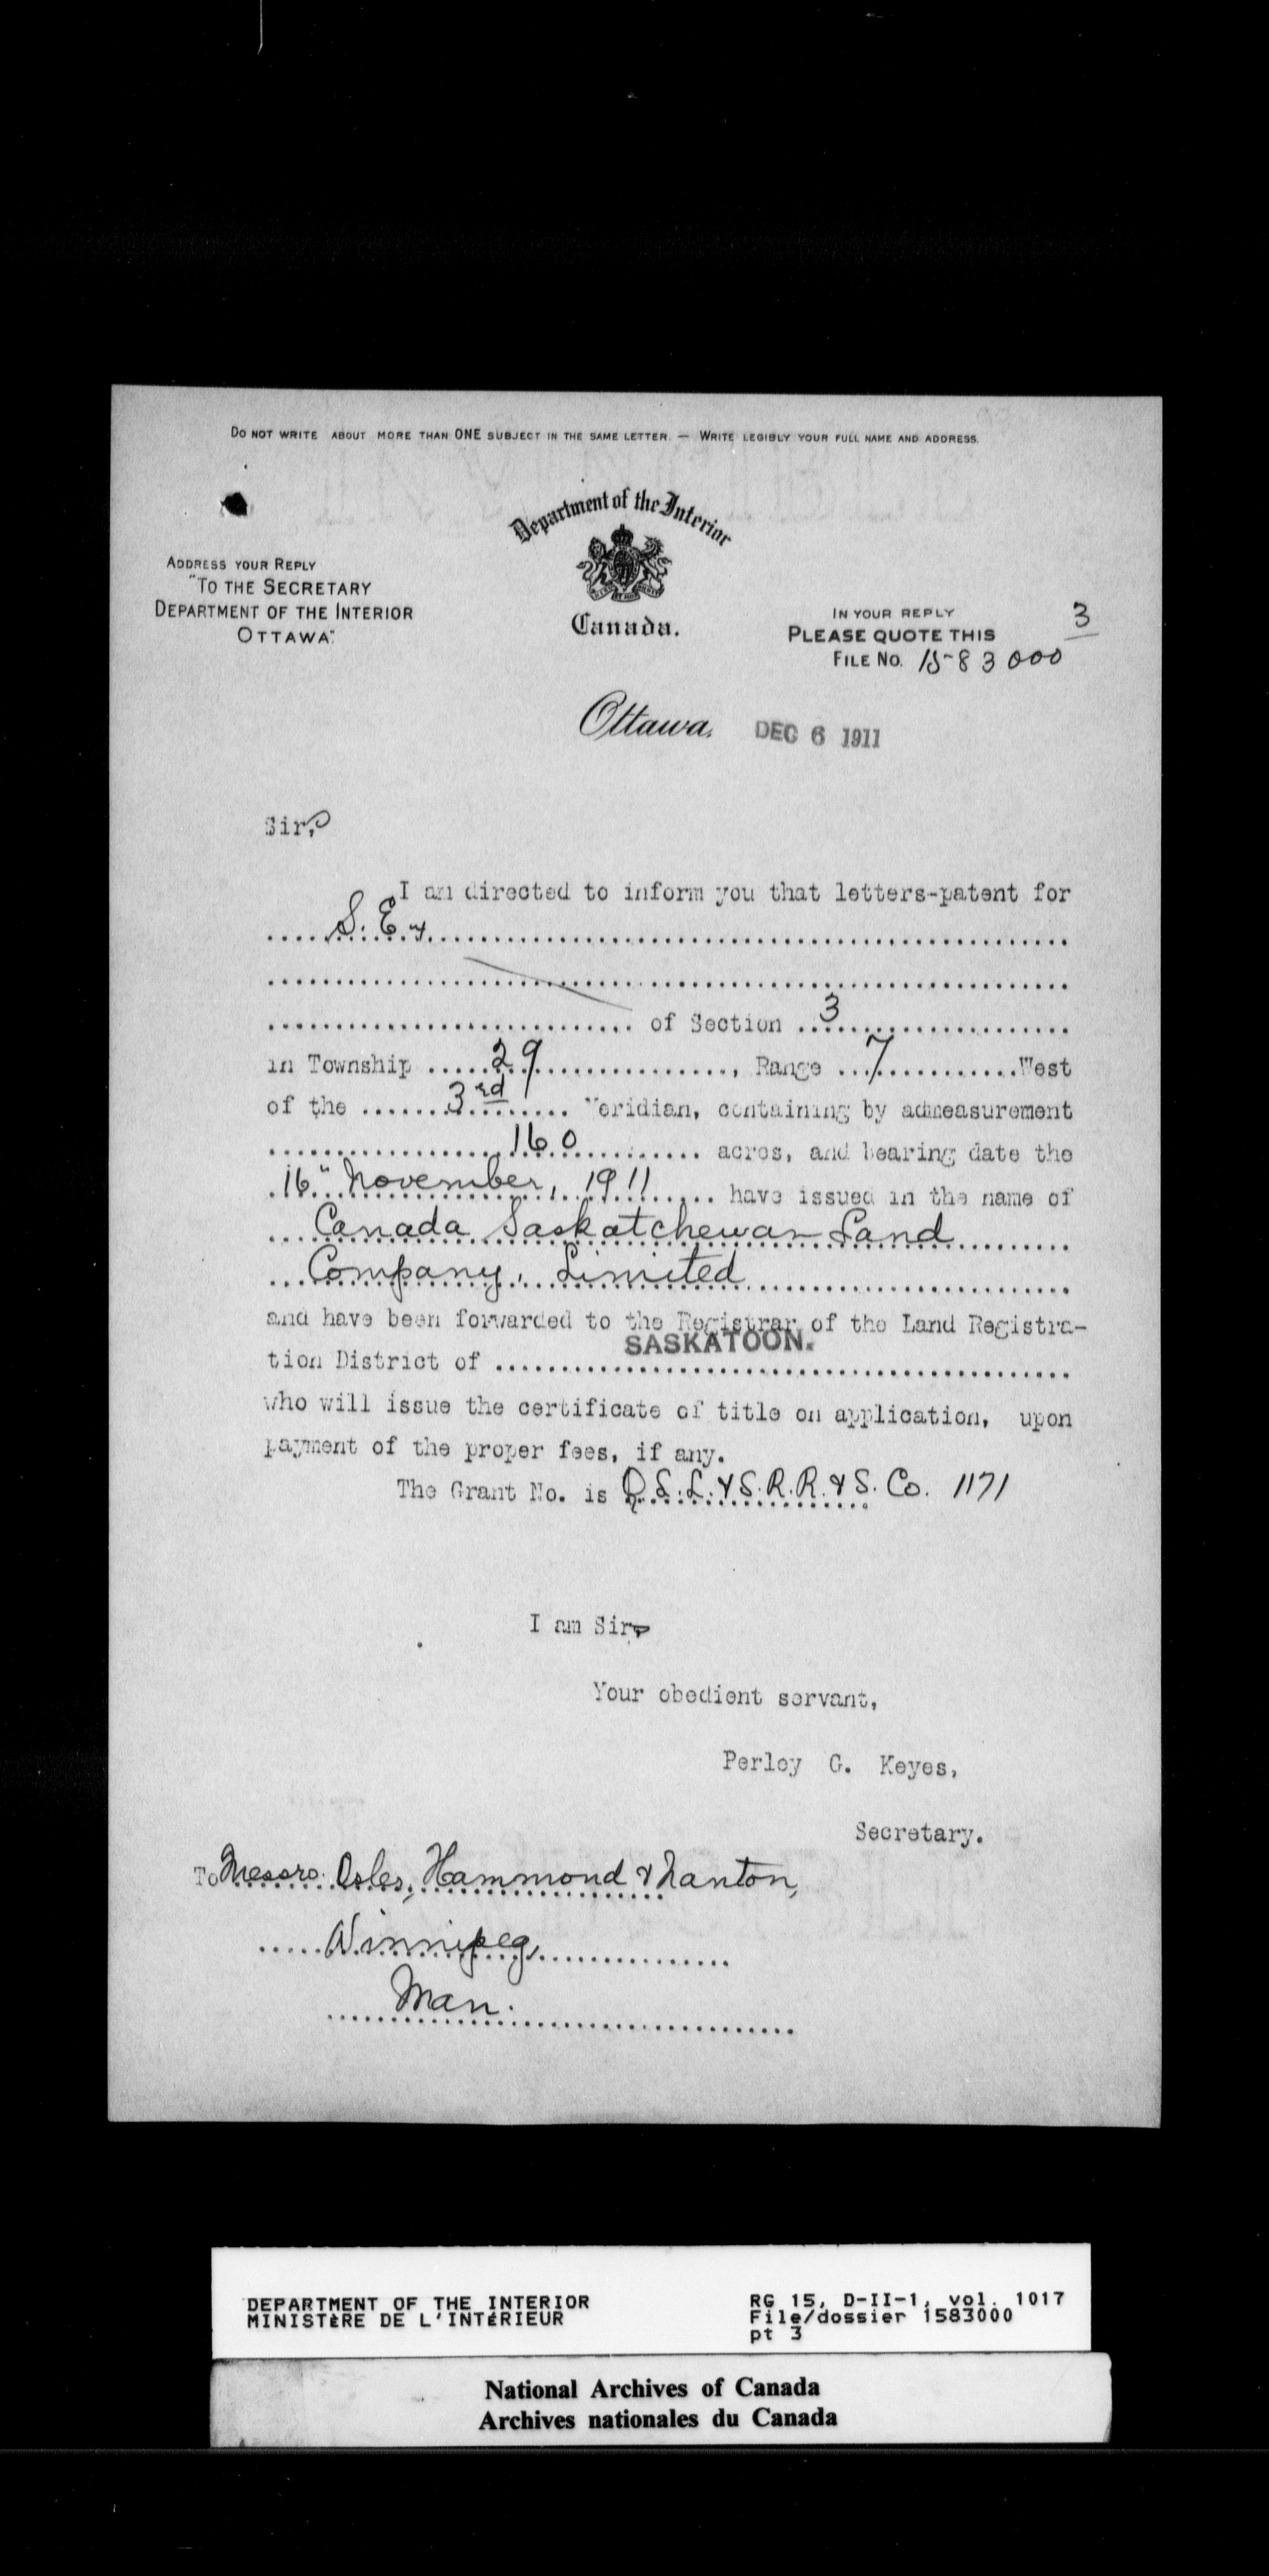 DO NOT WRITE ABOUT MORE THAN ONE SUBJECT IN THE SAME LETTER. — WRITE LEGIBLY YOUR FULL NAME AND ADDRESS.
Department of the Interior
Canada.
ADDRESS YOUR REPLY
"TO THE SECRETARY
DEPARTMENT OF THE INTERIOR
OTTAWA."
IN YOUR REPLY
PLEASE QUOTE THIS
FILE NO. 1583000
3
Ottawa, DEC 6 1911
Sir,
I am directed to inform you that letters-patent for
S. E. 4
of Section 3
in Township 29, Range 7 West
of the 3rd Meridian, containing by admeasurement
160 acres, and bearing date the
16" November, 1911 have issued in the name of
Canada Saskatchewan Land
Company, Limited
and have been forwarded to the Registrar of the Land Registra-
tion District of SASKATOON.
who will issue the certificate of title on application, upon
payment of the proper fees, if any.
The Grant No. is Q. L. & S. R. R. & S. Co. 1171
I am Sir,
Your obedient servant,
Perley G. Keyes,
Secretary.
To Messrs. Osler, Hammond & Nanton,
Winnipeg,
Man.
DEPARTMENT OF THE INTERIOR
MINISTÈRE DE L'INTÉRIEUR
RG 15, D-II-1, vol. 1017
File/dossier 1583000
pt 3
National Archives of Canada
Archives nationales du Canada